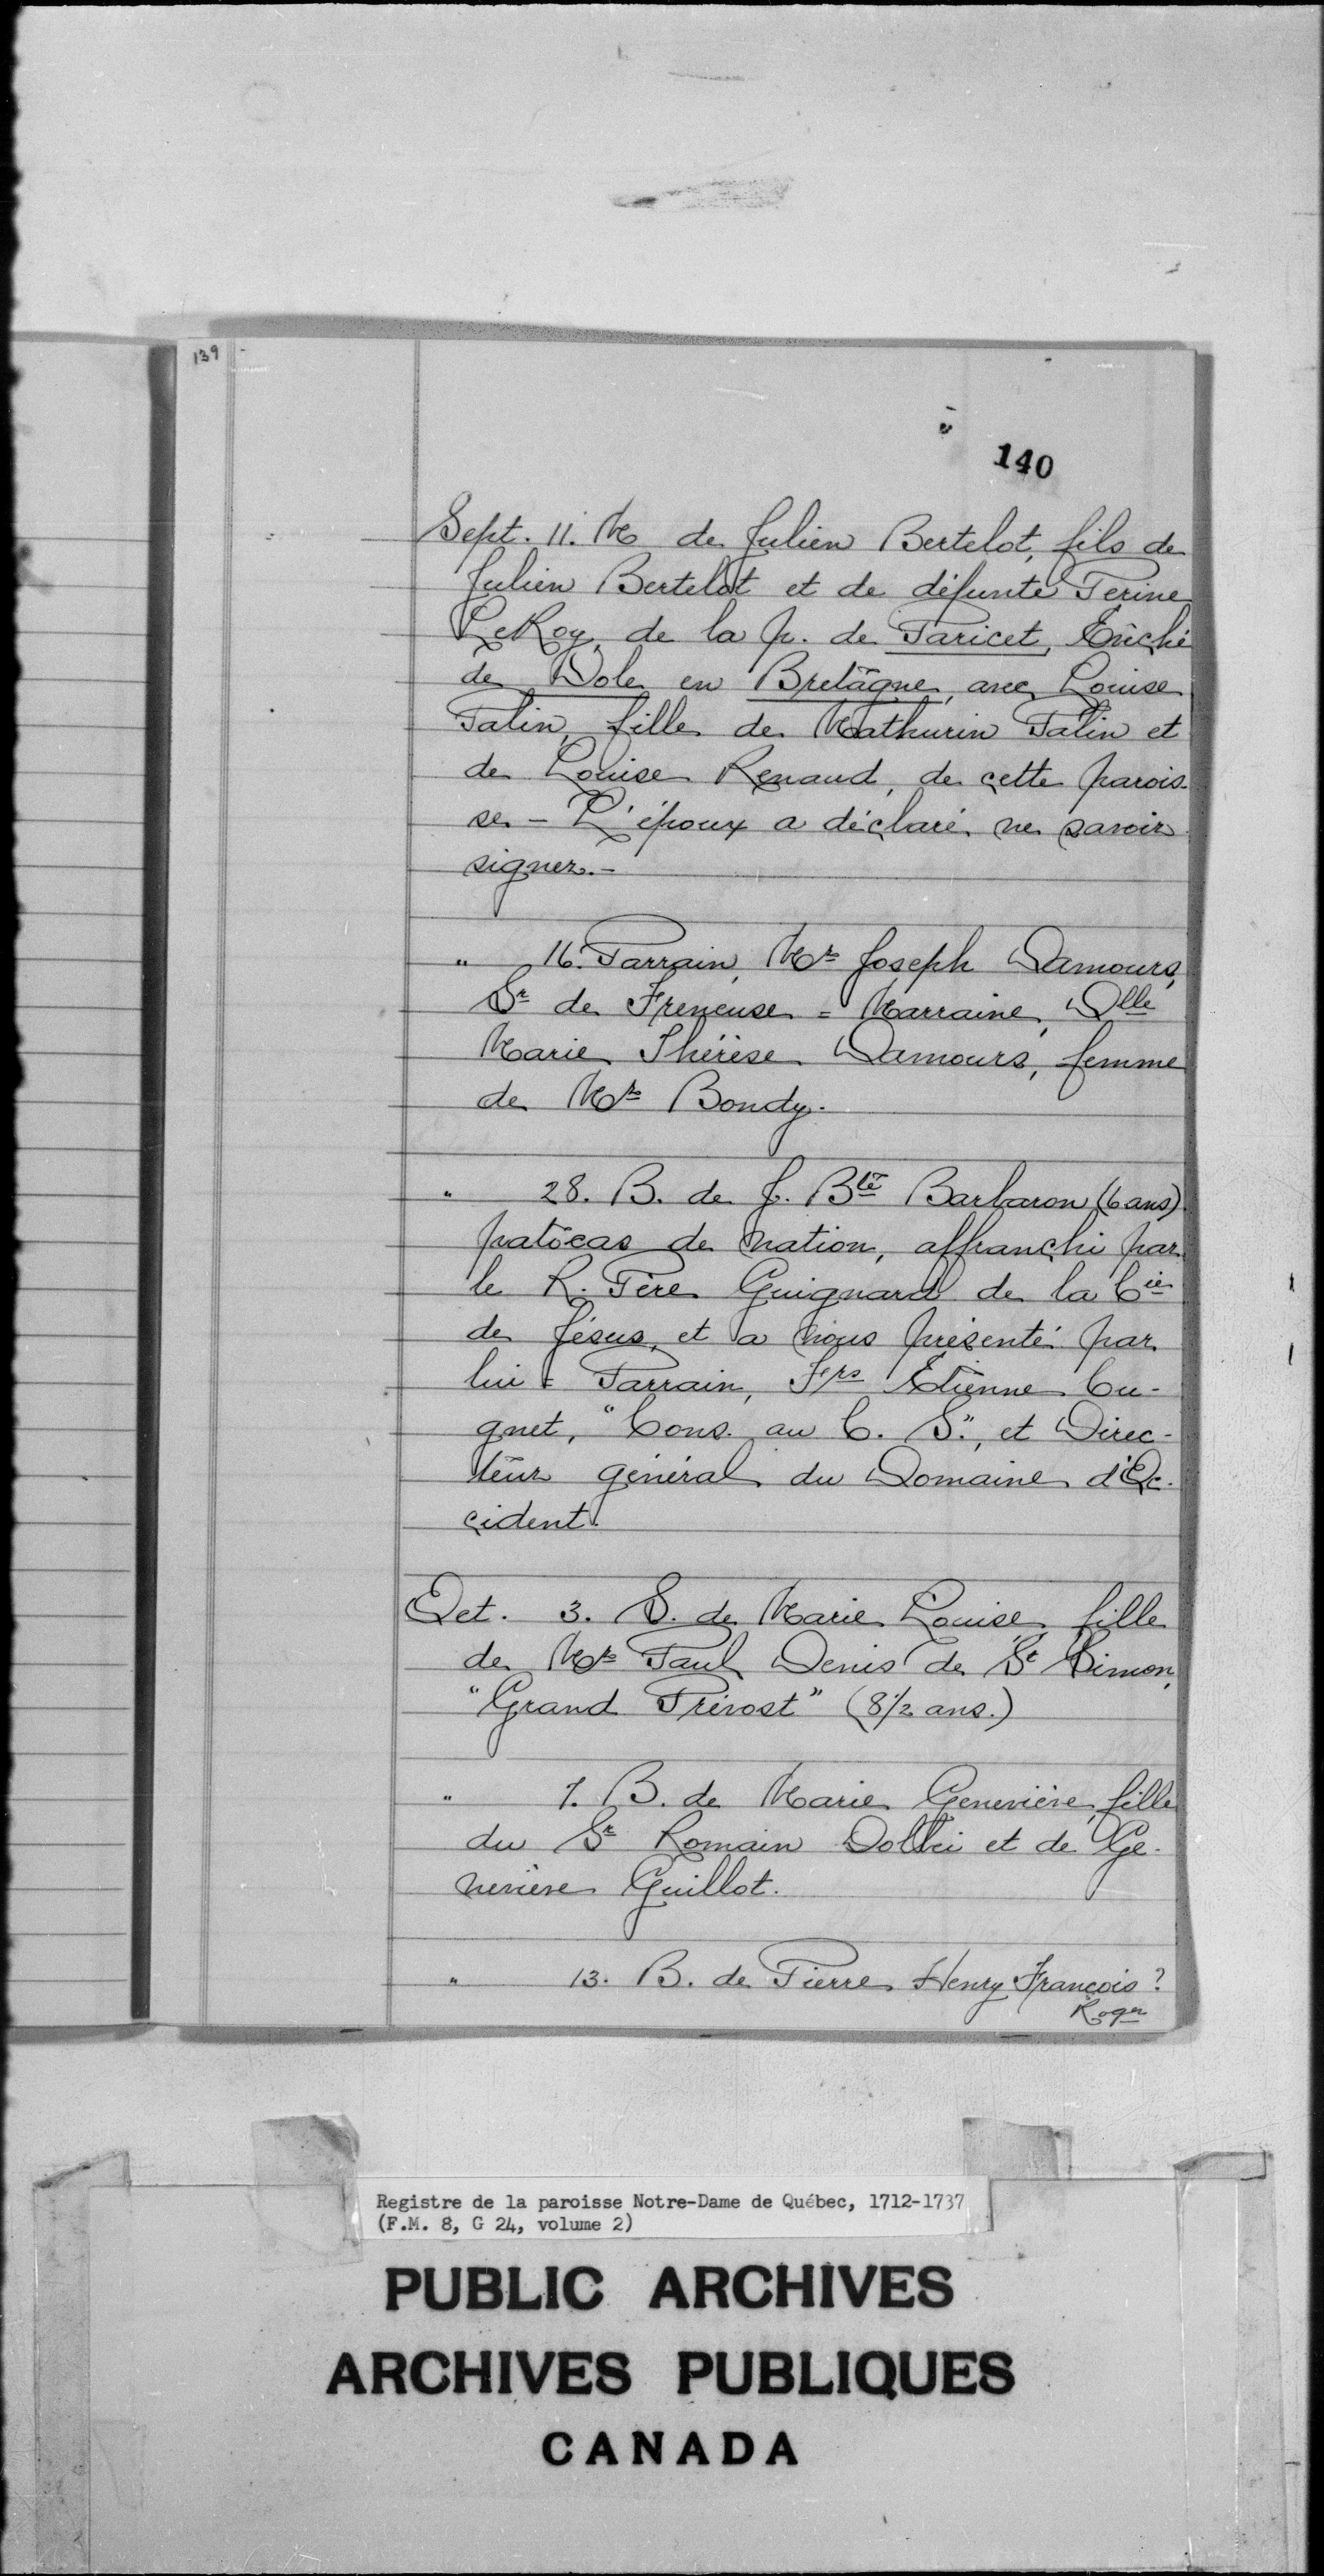 139
140
Sept. 11. M de Julien Bertelot, fils de
Julien Bertelot et de défunte Perine
LeRoy, de la p. de Paricet, Évêché
de Dole en Bretagne, avec Louise
Palin, fille de Mathurin Palin et
de Louise Renaud, de cette parois-
se - L'époux a déclaré ne savoir
signer. -
" 16. Parrain, Mr Joseph Damours,
Sr de Freneuse = Marraine, Dlle
Marie Thérèse Damours, femme
de Mr Bondy.
" 28. B. de J. Bte Barbaron (6 ans)
patocas de nation, affranchi par
le R. Père Guignard de la Cie
de Jésus, et a nous présenté par
lui = Parrain, Frs Etienne Cu-
gnet, "Cons. au C. S.", et Direc-
teur général du Domaine d'Oc-
cident.
Oct. 3. S. de Marie Louise, fille
de Mr Paul Denis de St Simon,
"Grand Prévost" (8 1/2 ans.)
" 7. B. de Marie Geneviève, fille
du Sr Romain et de Ge-
neviève Guillot.
" 13. B. de Pierre Henry François ?
Roger
Registre de la paroisse Notre-Dame de Québec, 1712-1737
(F.M. 8, G 24, volume 2)
PUBLIC ARCHIVES
ARCHIVES PUBLIQUES
CANADA